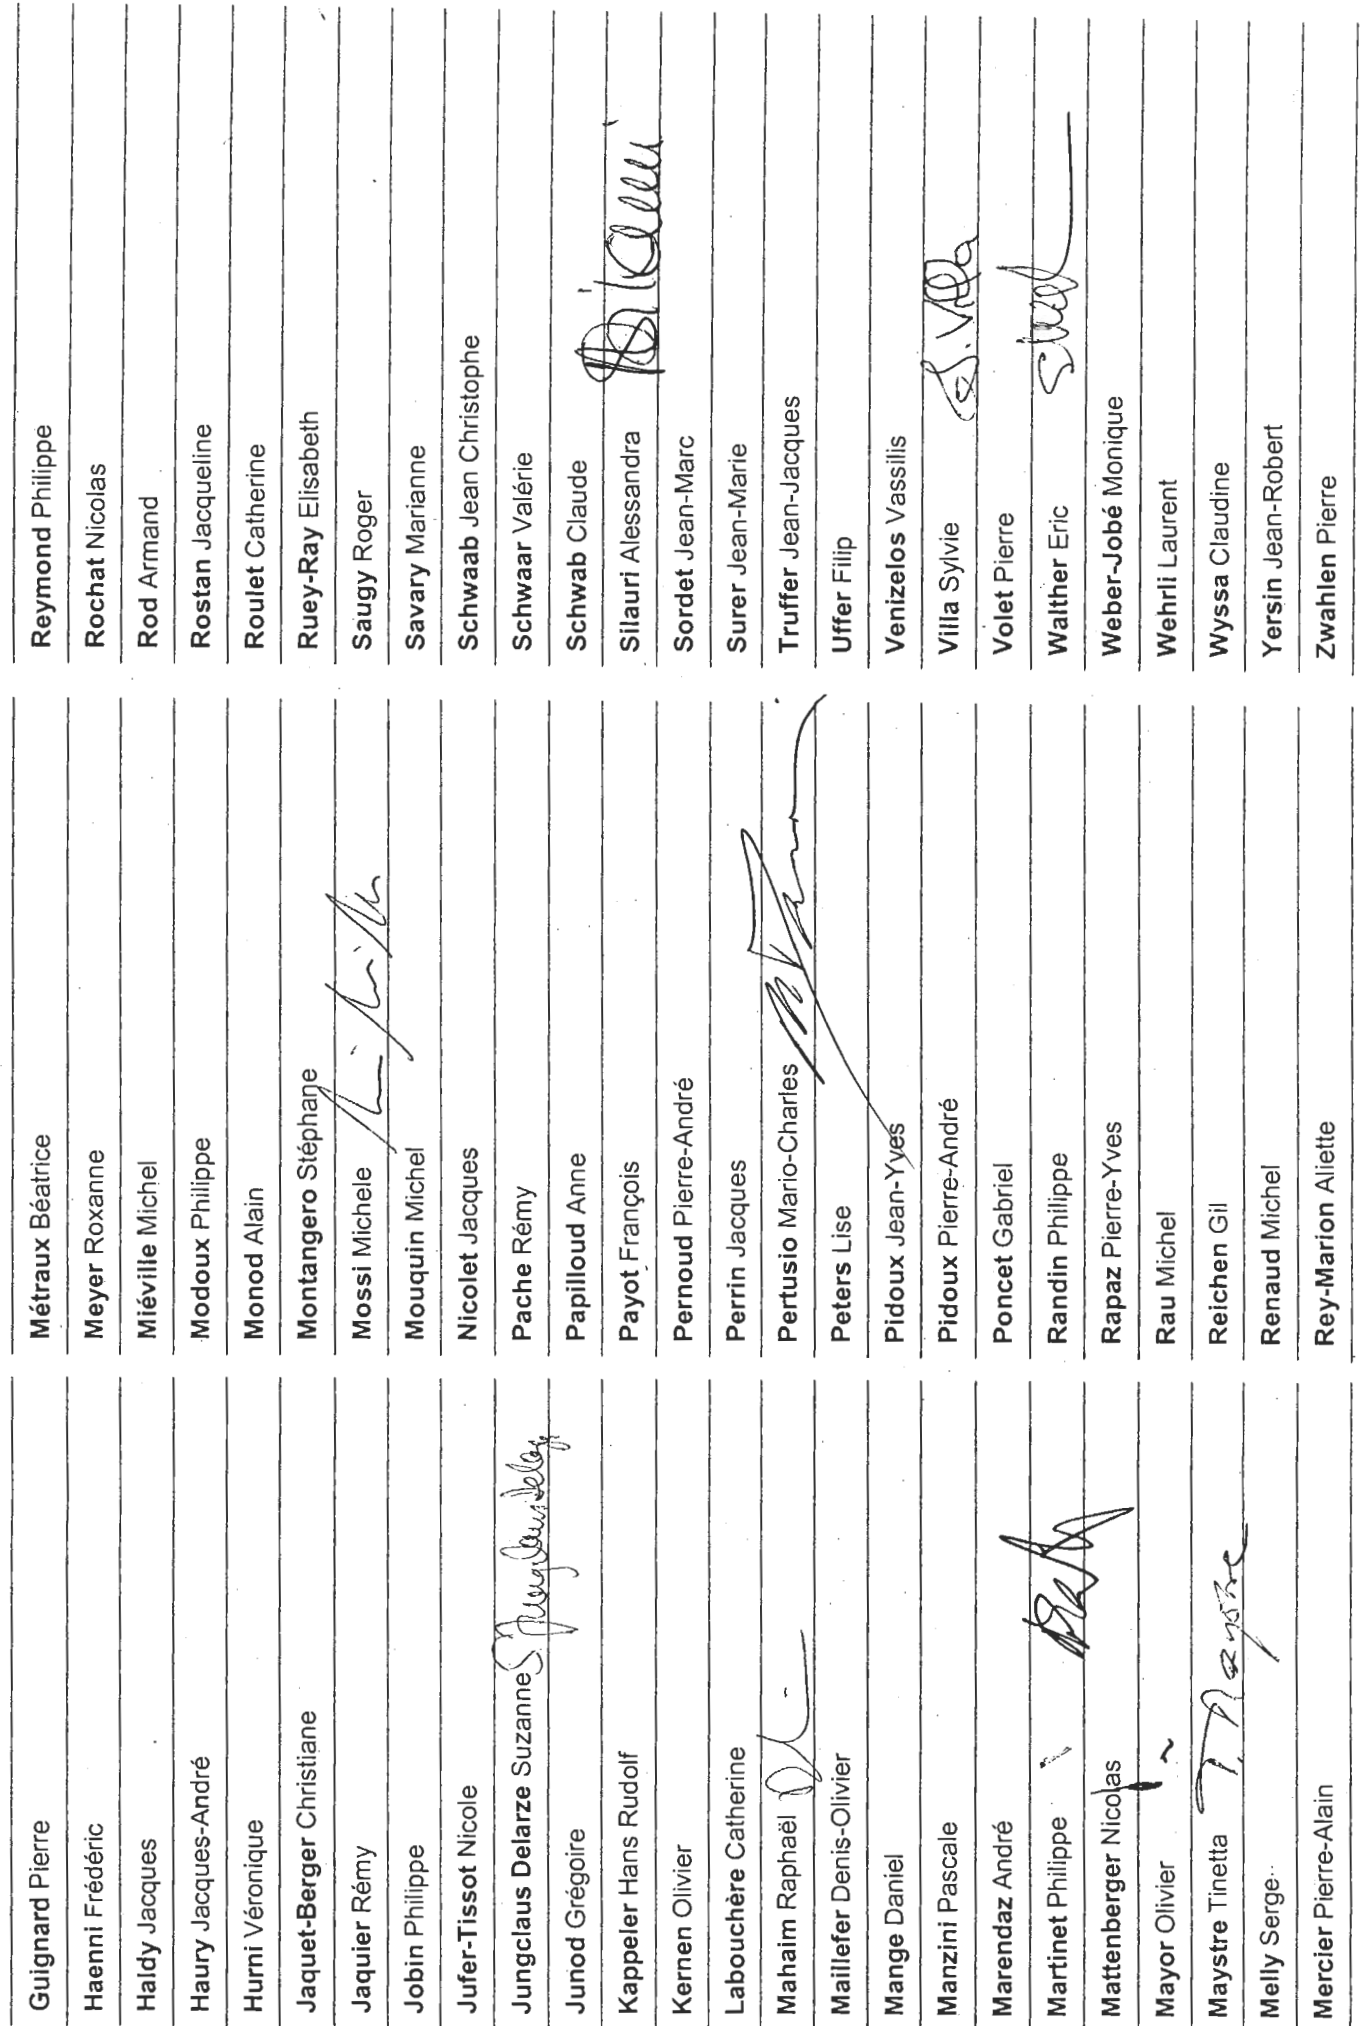 Guignard Pierre
Haenni Frédéric
Haldy Jacques
Haury Jacques-André
Hurni Véronique
Jaquet-Berger Christiane
Jaquier Rémy
Jobin Philippe
Jufer-Tissot Nicole
Jungclaus Delarze Suzanne S Jungclaus Delarze
Junod Grégoire
Kappeler Hans Rudolf
Kernen Olivier
Labouchère Catherine
Mahaim Raphaël
Maillefer Denis-Olivier
Mange Daniel
Manzini Pascale
Marendaz André
Martinet Philippe
Mattenberger Nicolas
Mayor Olivier
Maystre Tinetta T. Maystre
Melly Serge
Mercier Pierre-Alain
Métraux Béatrice
Meyer Roxanne
Miéville Michel
Modoux Philippe
Monod Alain
Montangero Stéphane
Mossi Michele
Mouquin Michel
Nicolet Jacques
Pache Rémy
Papilloud Anne
Payot François
Pernoud Pierre-André
Perrin Jacques
Pertusio Mario-Charles
Peters Lise
Pidoux Jean-Yves
Pidoux Pierre-André
Poncet Gabriel
Randin Philippe
Rapaz Pierre-Yves
Rau Michel
Reichen Gil
Renaud Michel
Rey-Marion Aliette
Reymond Philippe
Rochat Nicolas
Rod Armand
Rostan Jacqueline
Roulet Catherine
Ruey-Ray Elisabeth
Saugy Roger
Savary Marianne
Schwaab Jean Christophe
Schwaar Valérie
Schwab Claude
Silauri Alessandra
Sordet Jean-Marc
Surer Jean-Marie
Truffer Jean-Jacques
Uffer Filip
Venizelos Vassilis
Villa Sylvie S. Villa
Volet Pierre
Walther Eric
Weber-Jobé Monique
Wehrli Laurent
Wyssa Claudine
Yersin Jean-Robert
Zwahlen Pierre